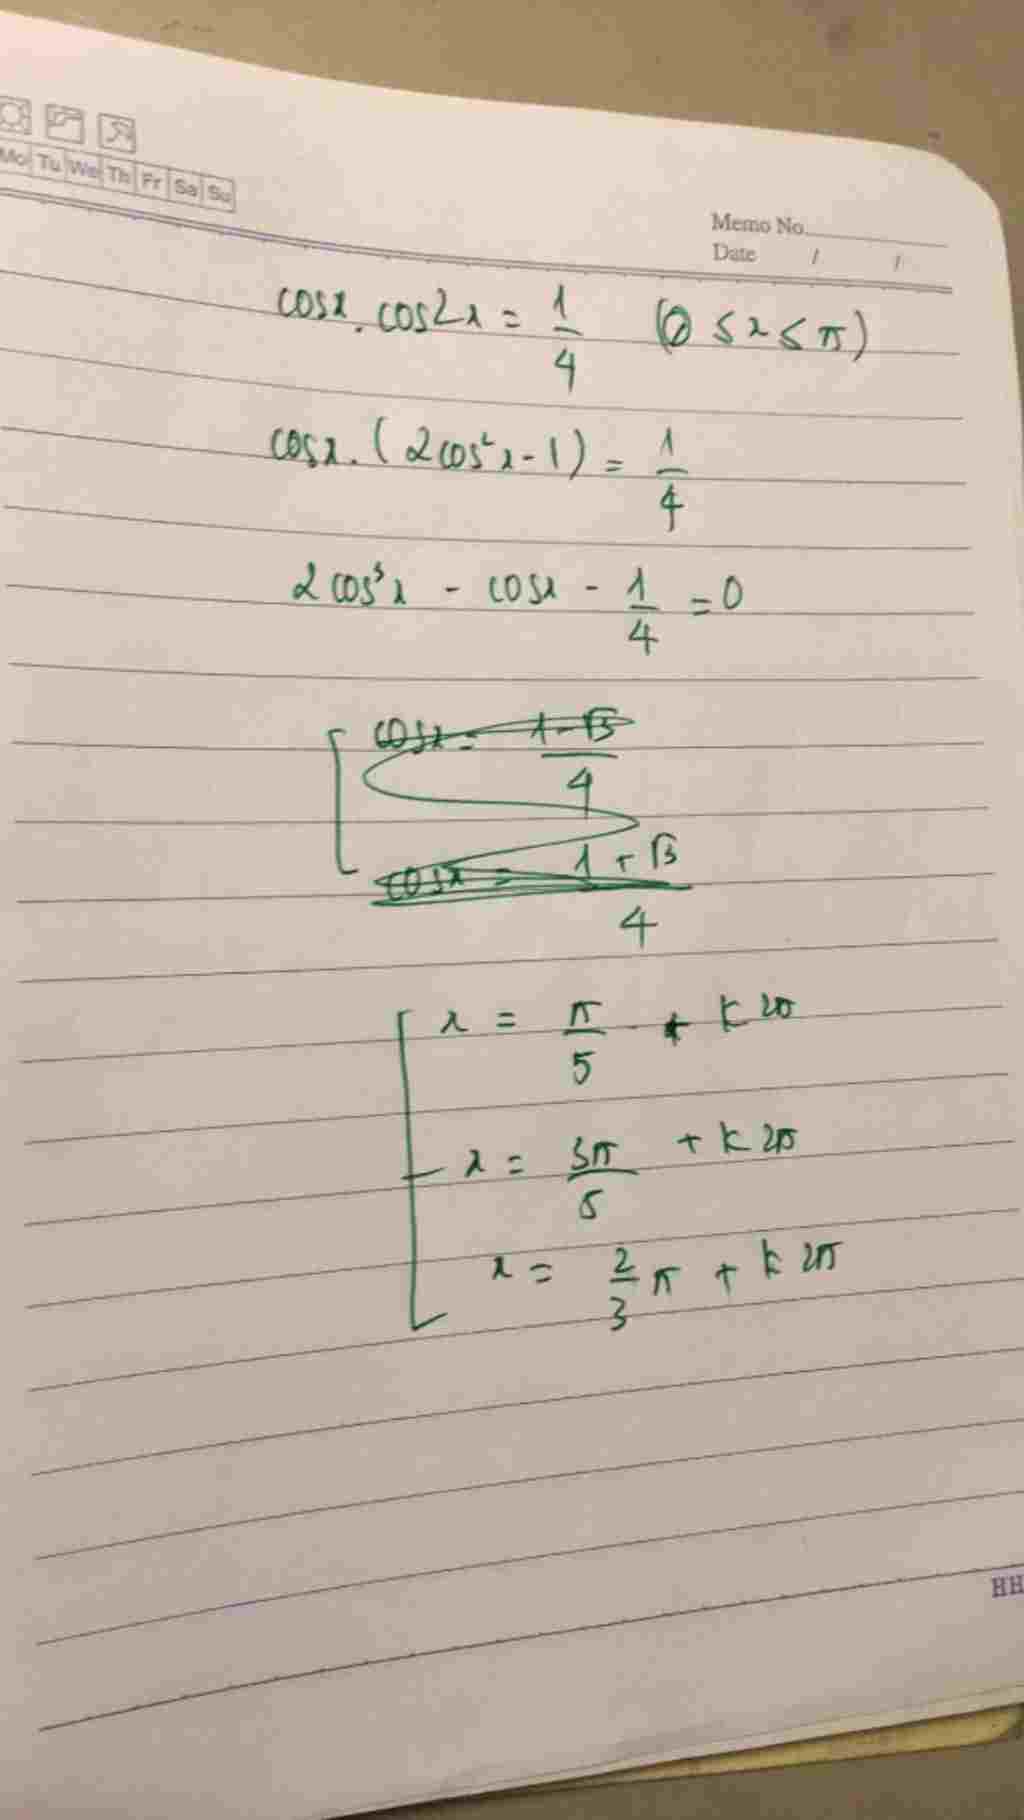 Mo Tu We Th Fr Sa Su
Memo No.
Date / /
cosx . cos2x = 1/4 (0 ≤ x ≤ π)
cosx . (2cos²x - 1) = 1/4
2cos³x - cosx - 1/4 = 0
cosx = (1 - √3)/4
cosx = (1 + √3)/4
x = π/5 + k2π
x = 3π/5 + k2π
x = 2/3 π + k2π
HH